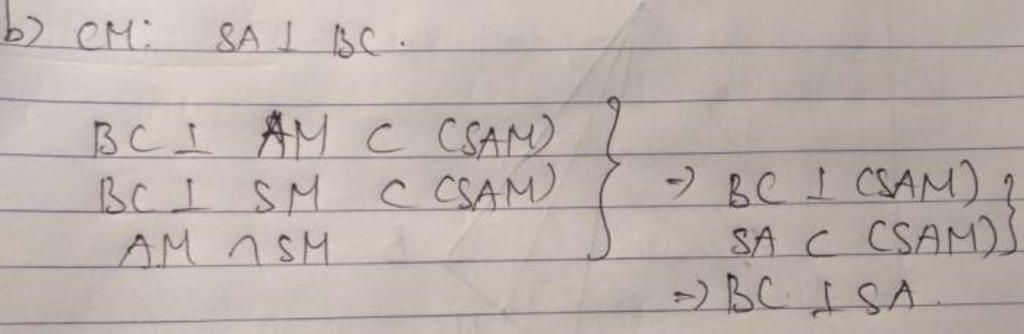 b) CM: SA ⊥ BC.
BC ⊥ AM ⊂ (SAM)
BC ⊥ SM ⊂ (SAM) } => BC ⊥ (SAM) }
AM ∩ SM SA ⊂ (SAM)
=> BC ⊥ SA.